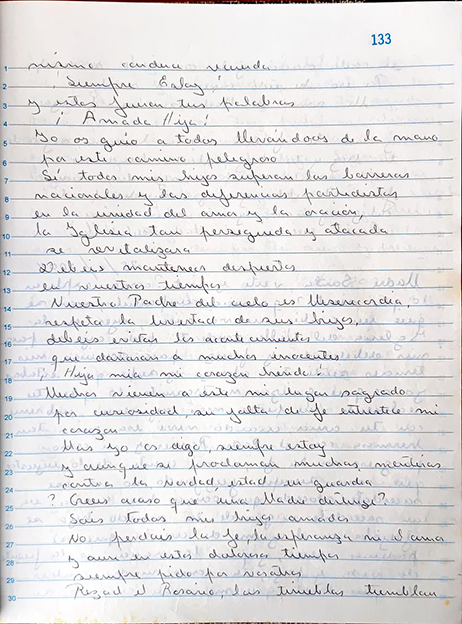 133
misma conducta recuerda
¡Siempre Estoy!
y estas fueron tus palabras
¡Amada Hija!
Yo os guio a todos llevándoos de la mano
por este camino peligroso
Si todos mis hijos superan las barreras
nacionales y las diferencias partidistas
en la unidad del amor y la oración,
la Iglesia tan perseguida y atacada
se revitalizara
Debeis manteneros despiertos
en vuestros tiempos
Nuestro Padre del cielo es Misericordia,
respeta la libertad de sus hijos,
debeis evitar los acontecimientos
que dañaran a muchos inocentes
¡Hija mia mi corazon herido!
Muchos vienen a este mi lugar sagrado
por curiosidad, su falta de fe entristece mi
corazon
Mas yo os digo, siempre estoy
y aunque se proclaman muchas mentiras
contra la verdad estad en guardia
? Crees acaso que una Madre destruye?
Sois todos mis hijos amados
No perdais la fe, la esperanza ni el amor
y aun en estos dolorosos tiempos
siempre pido por vosotros
Rezad el Rosario las tinieblas tiemblan